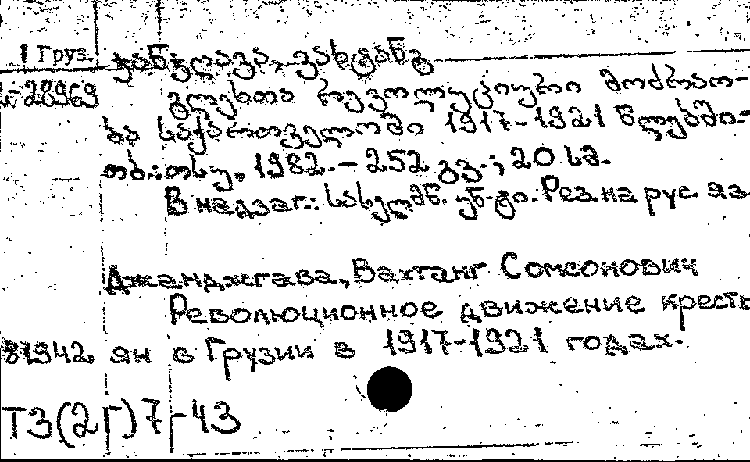 1 Груз. ჯანჯღავა, ვახტანგ
№ 28969 გლეხთა რევოლუციური მოძრაო-
ბა საქართველოში 1917-1921 წლებში.-
თბ.:თსუ, 1982.-252 გვ.; 20 სმ.
В надзаг.: სახელმწ. უნ-ტი. Рез. на рус. яз.
Джанджгава, Вахтанг Самсонович
Революционное движение кресть
81942. ян в Грузии в 1917-1921 годах.
Т3(2Г)7-43